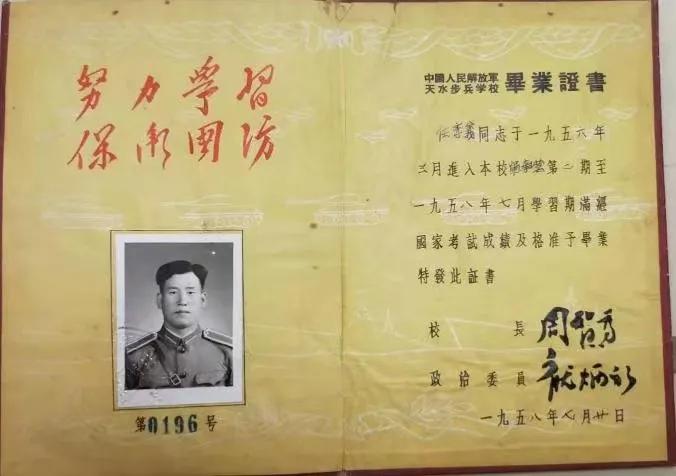 努力學習
保衛國防
第0196号
中國人民解放軍
天水步兵学校
畢業證書
同志于一九五六年
三月進入本校 第二期至
一九五八年七月學習期滿經
國家考試成績及格准予畢業
特發此証書
校長 周智高
政治委員 炳初
一九五八年七月廿日